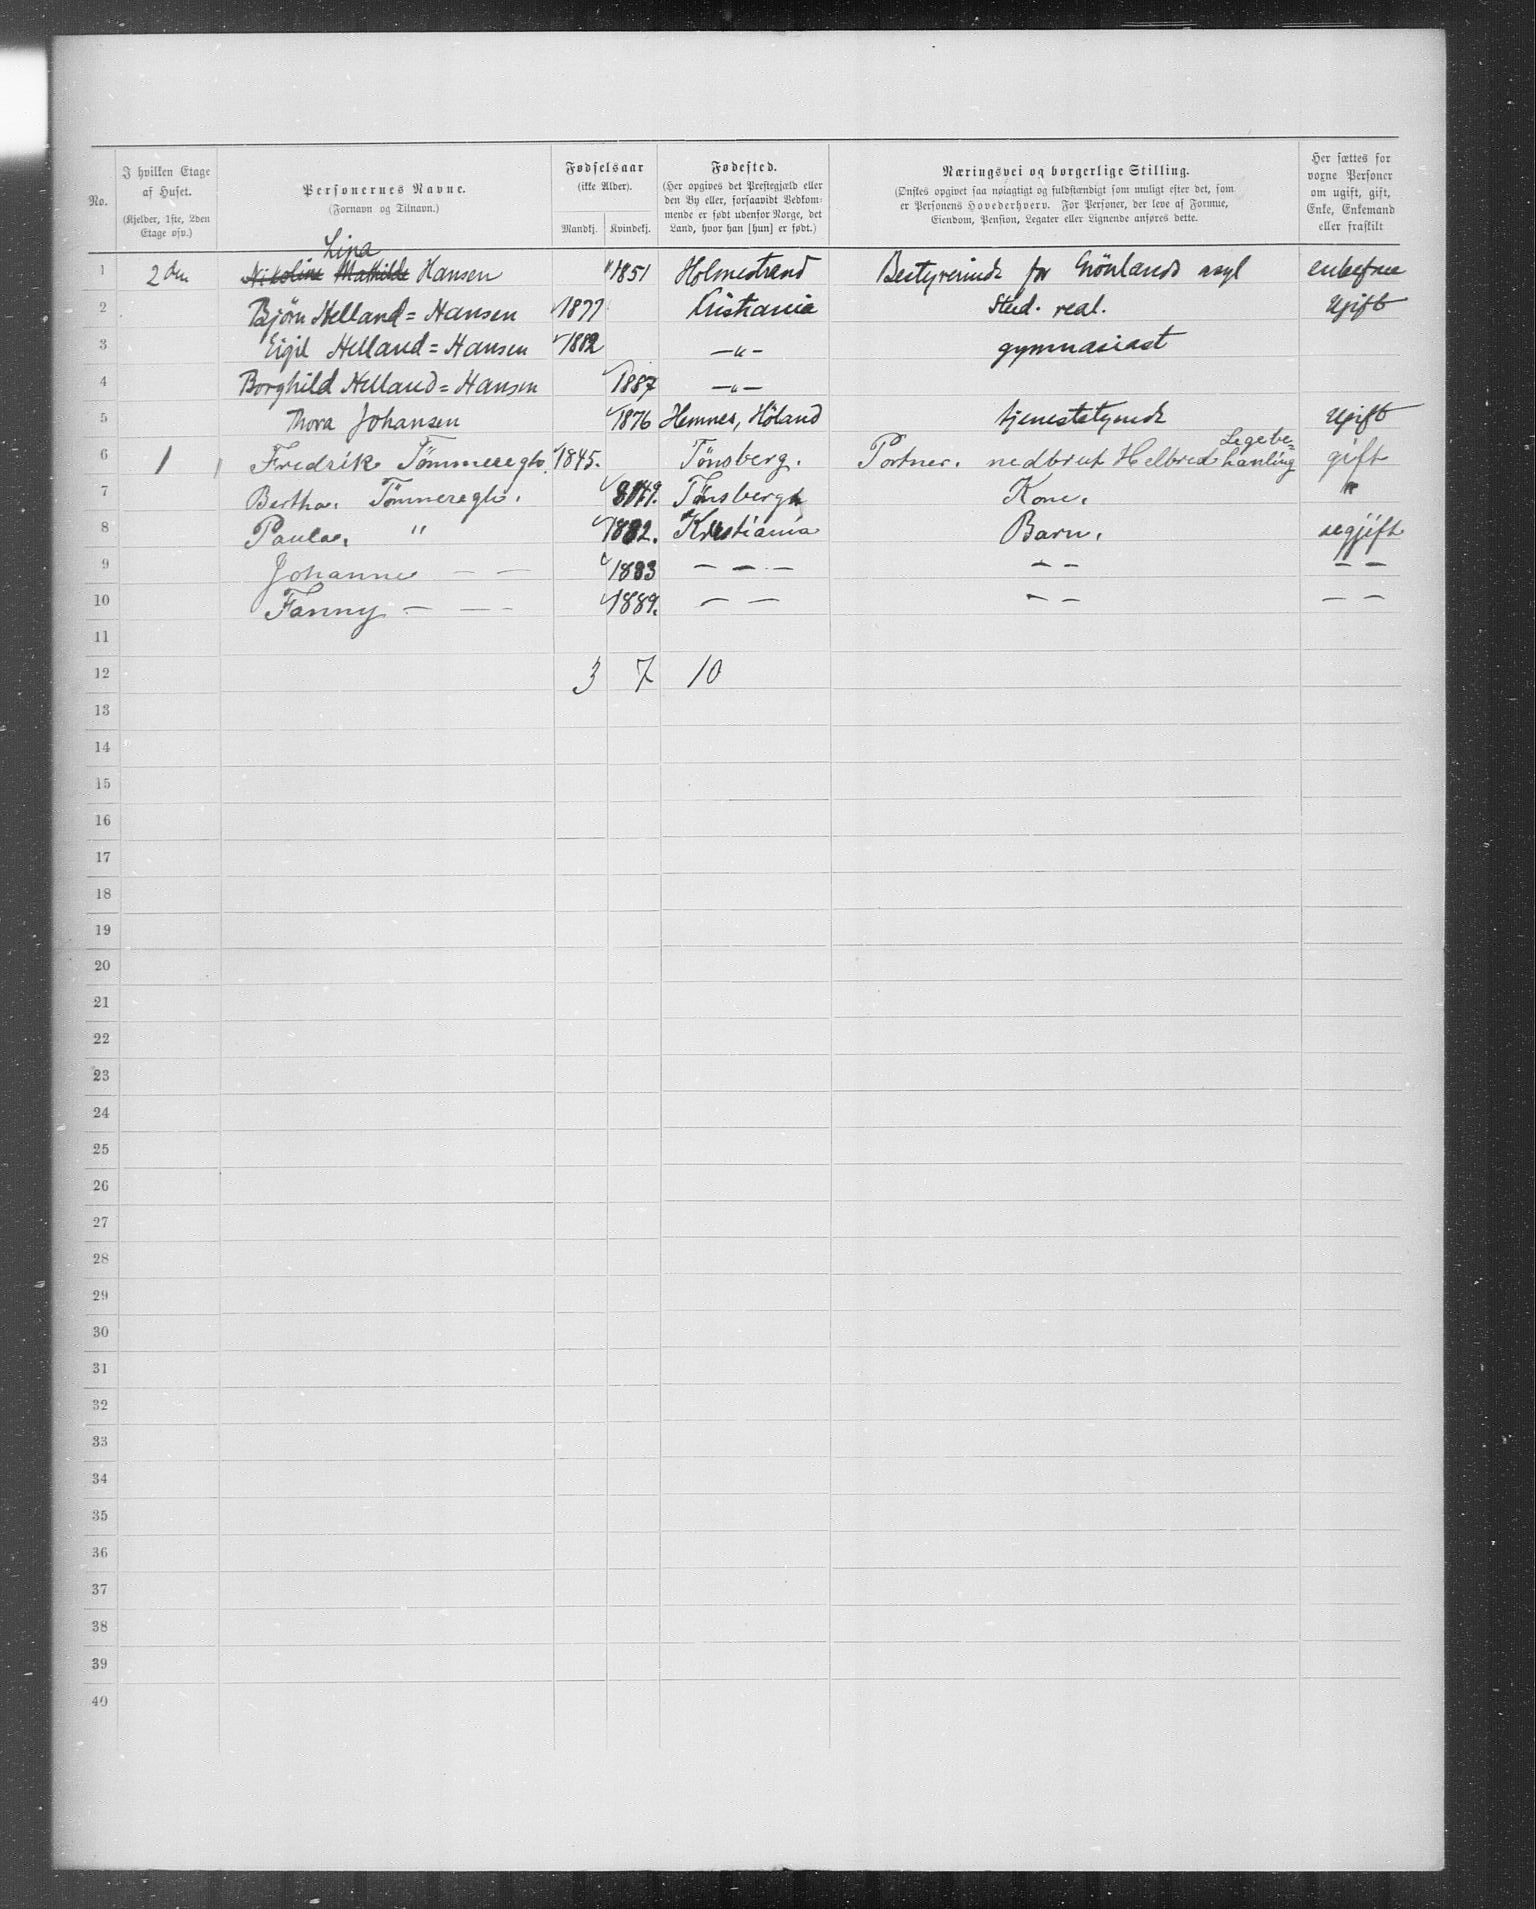 No.
I hvilken Etage af Huset.
(Kjelder, 1ste, 2den Etage osv.)
Personernes Navne.
(Fornavn og Tilnavn.)
Fødselsaar
(ikke Alder).
Mandkj. Kvindekj.
Fødested.
(Her opgives det Prestegjæld eller
den By eller, forsaavidt Vedkom-
mende er født udenfor Norge, det
Land, hvor han [hun] er født.)
Næringsvei og borgerlige Stilling.
(Ønskes opgivet saa nøiagtigt og fuldstændigt som muligt efter det, som
er Personens Hovederhverv. For Personer, der leve af Formue,
Eiendom, Pension, Legater eller Lignende anføres dette.
Her sættes for
voxne Personer
om ugift, gift,
Enke, Enkemand
eller fraskilt
Lina
1 2den Nikoline Mathilde Hansen 1851 Holmestrand Bestyrerinde for Grönlands asyl enkefrue
2 Bjørn Helland=Hansen 1877 Kristiania Stud. real. Ugift
3 Eigil Helland=Hansen 1882 —„— gymnasiast
4 Borghild Helland=Hansen 1887 —„—
5 Thora Johansen 1876 Hemnes, Höland tjenestetyende Ugift
6 1 Fredrik Tömmeregh 1845. Tönsberg. Portner. nedbrut Helbred Legebe=
hanling gift
7 Bertha. Tömmeregh. 1849. Tönsberg Kone. "
8 Paula. " 1882. Kristiania Barn. ugjift
9 Johanne — — 1883 — — — — — — —
10 Fanny — — — 1889. — — — — — —
11
12 3 7 10
13
14
15
16
17
18
19
20
21
22
23
24
25
26
27
28
29
30
31
32
33
34
35
36
37
38
39
40